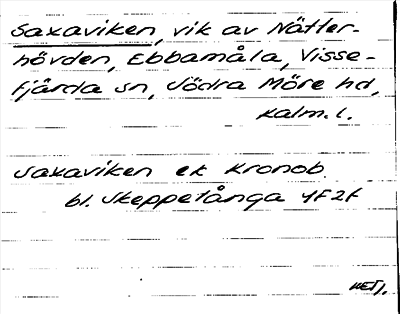 Saxaviken, vik av Nätter-
hövden, Ebbamåla, Visse-
fjärda sn, Södra Möre hd,
Kalm. l.
Saxaviken ek Kronob.
bl. Skeppetånga 4F2f